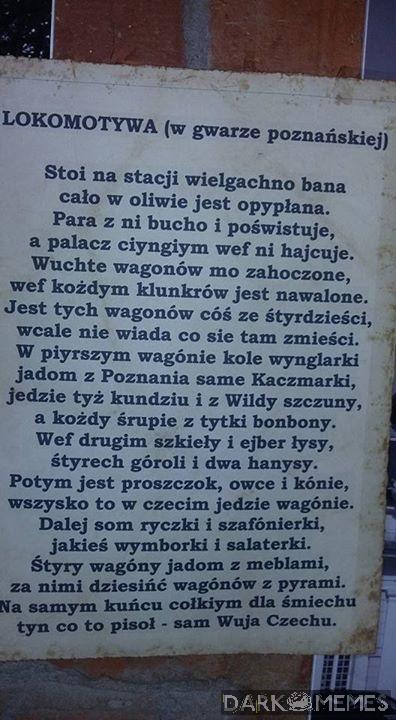 LOKOMOTYWA (w gwarze poznańskiej)
Stoi na stacji wielgachno bana
cało w oliwie jest opypłana.
Para z ni bucho i poświstuje,
a palacz ciyngiym wef ni hajcuje.
Wuchte wagonów mo zahoczone,
wef kożdym klunkrów jest nawalone.
Jest tych wagonów cóś ze śtyrdzieści,
wcale nie wiada co sie tam zmieści.
W piyrszym wagónie kole wynglarki
jadom z Poznania same Kaczmarki,
jedzie tyż kundziu i z Wildy szczuny,
a kożdy śrupie z tytki bonbony.
Wef drugim szkieły i ejber łysy,
śtyrech góroli i dwa hanysy.
Potym jest proszczok, owce i kónie,
wszysko to w czecim jedzie wagónie.
Dalej som ryczki i szafónierki,
jakieś wymborki i salaterki.
Śtyry wagóny jadom z meblami,
za nimi dziesińć wagónów z pyrami.
Na samym kuńcu cołkiym dla śmiechu
tyn co to pisoł - sam Wuja Czechu.
DARK MEMES